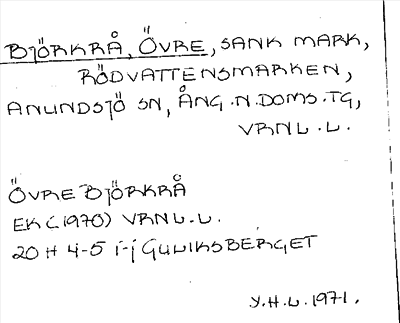 BJÖRKRÅ, ÖVRE, SANK MARK,
RÖDVATTENSMARKEN,
ANUNDSJÖ SN, ÅNG.N.DOMS.TG,
VRNL.L.
ÖVRE BJÖRKRÅ
EK (1970) VRNL.L.
20 H 4-5 i-j GULIKSBERGET
Y.H.L. 1971.